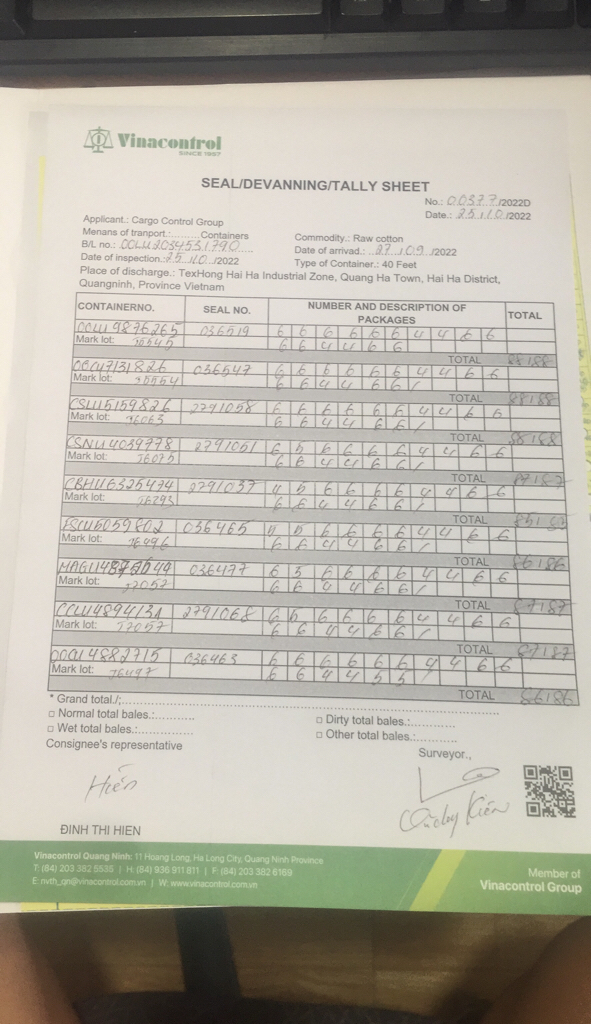 Vinacontrol
SINCE 1957
SEAL/DEVANNING/TALLY SHEET
No.: 00377/2022D
Date.: 25/10/2022
Applicant.: Cargo Control Group
Menans of tranport.:......... Containers
Commodity.: Raw cotton
B/L no.: OOLU2034531790
Date of arrivad.: 27/09/2022
Date of inspection.: 25/10/2022
Type of Container.: 40 Feet
Place of discharge.: TexHong Hai Ha Industrial Zone, Quang Ha Town, Hai Ha District,
Quangninh, Province Vietnam
CONTAINERNO. SEAL NO. NUMBER AND DESCRIPTION OF PACKAGES TOTAL
OOLU9876265 036519 6 6 6 6 6 6 4 4 6 6
Mark lot: 6 6 4 4 6 6
TOTAL 88/88
036547 6 6 6 6 6 6 4 4 6 6
Mark lot: 6 6 4 4 6 6 /
TOTAL 88/88
CSLU5159826 2791058 6 6 6 6 6 6 4 4 6 6
Mark lot: 76063 6 6 4 4 6 6 /
TOTAL 88/88
CSNU4039778 2791051 6 5 6 6 6 6 4 4 6 6
Mark lot: 76075 6 6 4 4 6 6 /
TOTAL 87/87
CBHU6325474 2791037 4 5 6 6 6 6 4 4 6 6
Mark lot: 76293 6 6 4 4 6 6 /
TOTAL 85/85
FSCU5059802 036465 6 6 6 6 4 4 6 6
Mark lot: 76496 6 6 4 4 6 6 /
TOTAL 86/86
036477 6 5 6 6 6 6 4 4 6 6
Mark lot: 77052 6 6 4 4 6 6 /
TOTAL 87/87
2791068 6 5 6 6 6 6 4 4 6 6
Mark lot: 77057 6 6 4 4 6 6 /
TOTAL 87/87
OOCU4882715 036463 6 6 6 6 6 6 4 4 6 6
Mark lot: 76497 6 6 4 4 5 5
TOTAL 86/86
* Grand total./:
□ Normal total bales.:...........
□ Dirty total bales.:............
□ Wet total bales.:............
□ Other total bales.:............
Consignee's representative
Surveyor.,
Hiền
Kiên
ĐINH THI HIEN
Vinacontrol Quang Ninh: 11 Hoang Long, Ha Long City, Quang Ninh Province
T: (84) 203 382 5535 | H: (84) 936 911 811 | F: (84) 203 382 6169
E: nvth_qn@vinacontrol.com.vn | W: www.vinacontrol.com.vn
Member of
Vinacontrol Group